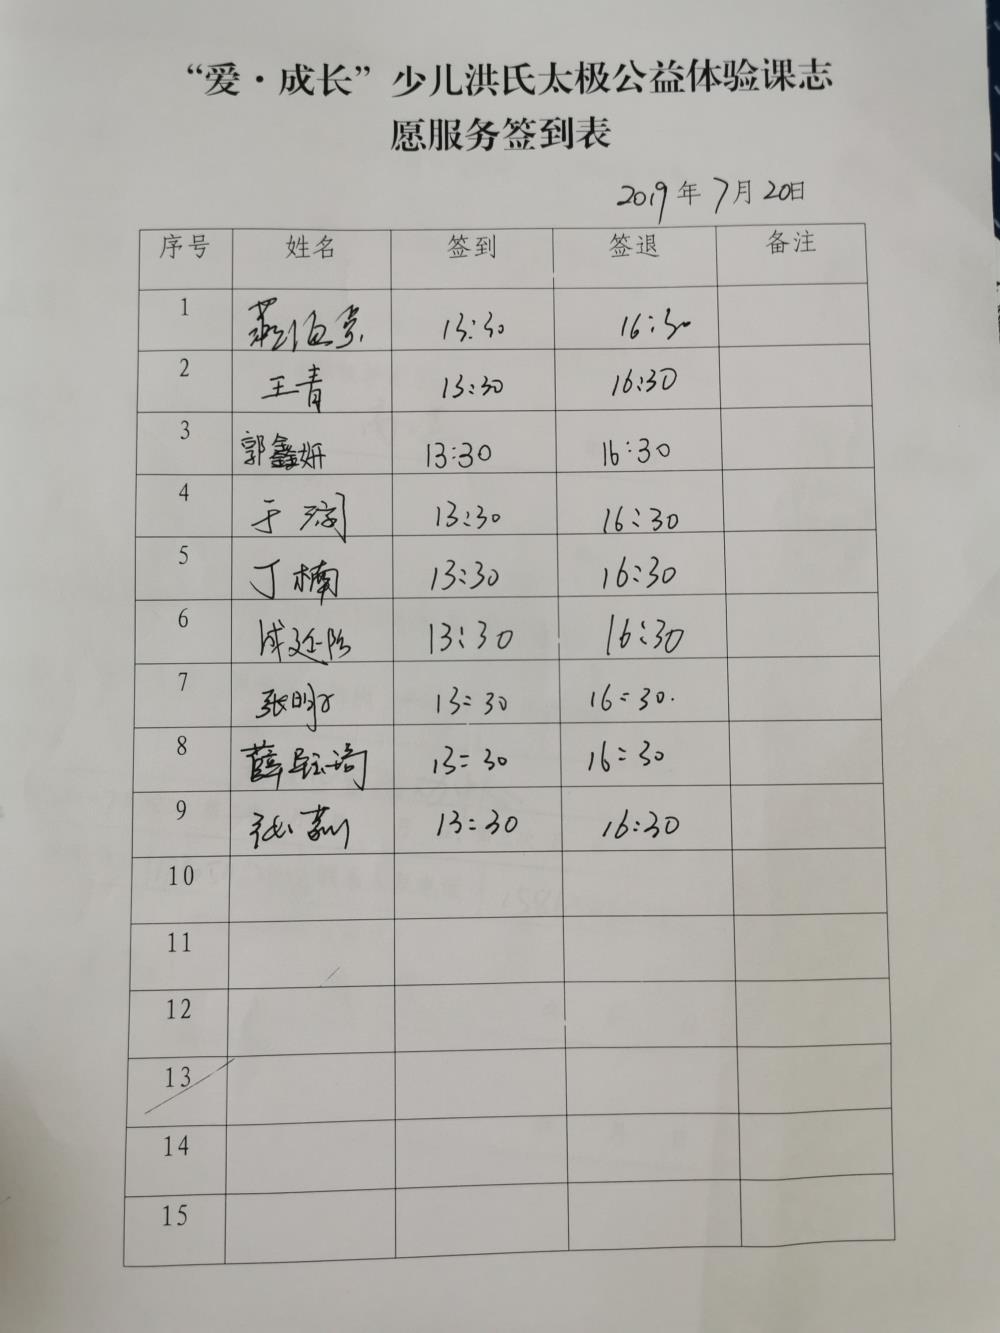 “爱·成长”少儿洪氏太极公益体验课志
愿服务签到表
2019年7月20日
序号 姓名 签到 签退 备注
1 13:30 16:30
2 王青 13:30 16:30
3 郭鑫妍 13:30 16:30
4 于 13:30 16:30
5 丁楠 13:30 16:30
6 13:30 16:30
7 张明 13:30 16:30.
8 薛钰琦 13:30 16:30
9 张 13:30 16:30
10
11
12
13
14
15